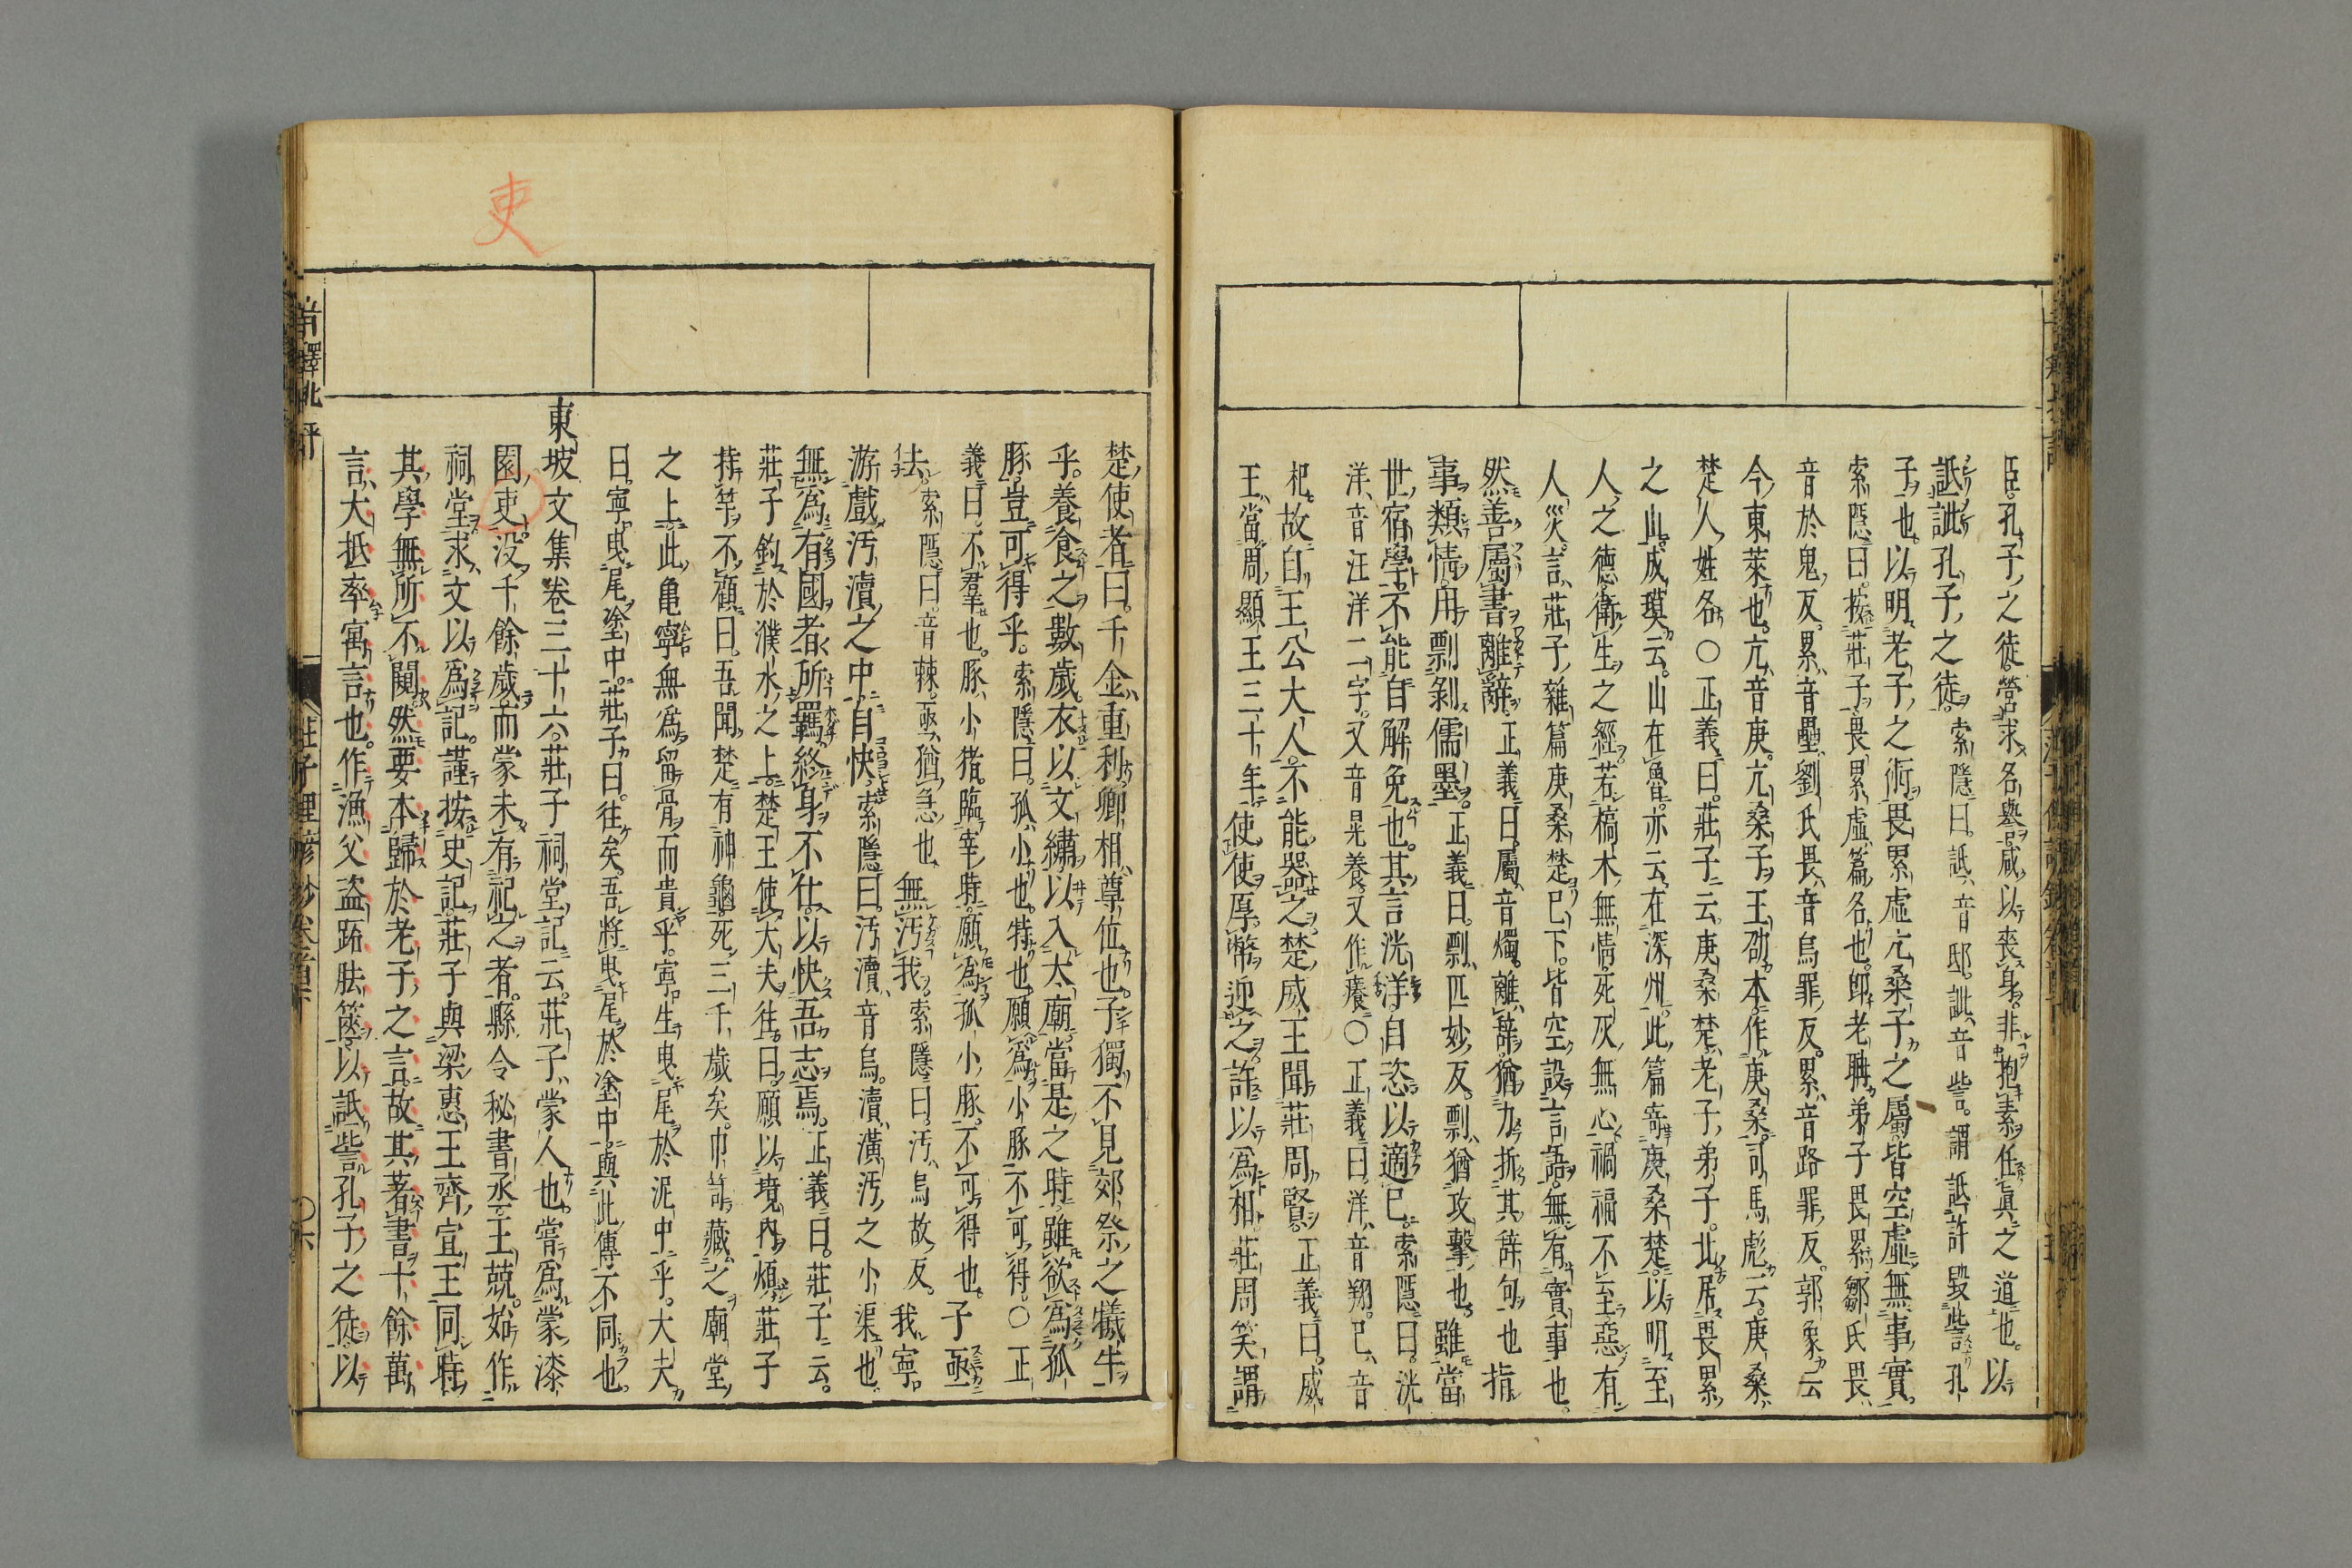 臣孔子之徒營求名譽咸以喪身非抱素任眞之道也以
詆訿孔子之徒索隱曰詆音邸訿音訾謂詆訐毀訾孔
子也以明老子之術畏累虛亢桑子之屬皆空虛無事實
索隱曰按莊子畏累虛篇名也即老聃弟子畏累鄒氏畏
音於鬼反累音壘劉氏畏音烏罪反累音路罪反郭象云
今東萊也亢音庚亢桑子王劭本作庚桑司馬彪云庚桑
楚人姓名〇正義曰莊子云庚桑楚老子弟子北居畏累
之山成瑛云山在魯亦云在深州此篇寄庚桑楚以明至
人之德衛生之經若槁木無情死灰無心禍福不至惡有
人災言莊子雜篇庚桑楚已下皆空設言語無有實事也
然善屬書離辭正義曰屬音燭離辭猶力折其辭句也指
事類情用剽剝儒墨正義曰剽匹妙反剽猶攻擊也雖當
世宿學不能自解免也其言洸洋自恣以適己索隱曰洸
洋音汪洋二字又音晃養又作瀁〇正義曰洋音翔己音
杞故自王公大人不能器之楚威王聞莊周賢正義曰威
王當周顯王三十年使使厚幣迎之許以爲相莊周笑謂
楚使者曰千金重利卿相尊位也子獨不見郊祭之犧牛
乎養食之數歲衣以文繡以入太廟當是之時雖欲爲孤
豚豈可得乎索隱曰孤小也特也願爲小豚不可得〇正
義曰不羣也豚小猪臨宰時願爲孤小豚不可得也子亟
去索隱曰音棘亟猶急也無汚我索隱曰汚烏故反我寧
游戲汚瀆之中自快索隱曰汚瀆音烏瀆潢汚之小渠也
無爲有國者所羈終身不仕以快吾志焉正義曰莊子云
莊子釣於濮水之上楚王使大夫往曰願以境內煩莊子
持竿不顧曰吾聞楚有神龜死三千歲矣巾笥藏之廟堂
之上此亀寧無爲留骨而貴乎寧生曳尾於泥中乎大夫
曰寧曳尾塗中莊子曰往矣吾將曳尾於塗中與此傳不同也
東坡文集卷三十六莊子祠堂記云莊子蒙人也嘗爲蒙漆
園吏没千餘歲而蒙未有祀之者縣令秘書丞王兢始作
祠堂求文以爲記謹按史記莊子與梁惠王齊宣王同時
其學無所不闚然要本歸於老子之言故其著書十餘萬
言大抵率寓言也作漁父盗跖胠篋以詆訾孔子之徒以
吏